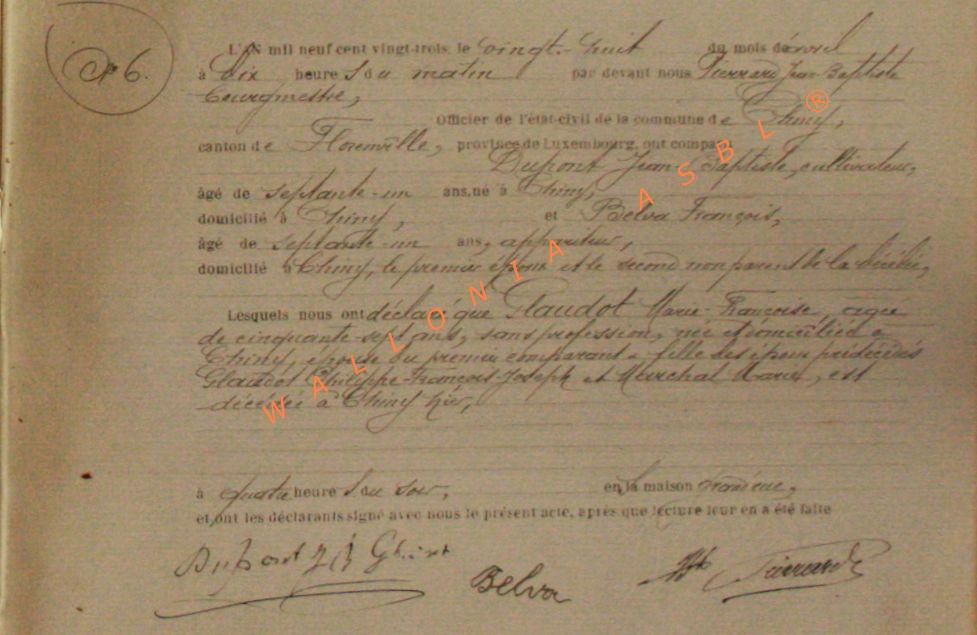 N° 6.
L'AN mil neuf cent vingt-trois, le vingt-huit du mois de avril
à dix heure s du matin par devant nous Pierrard Jean-Baptiste
bourgmestre,
Officier de l'état-civil de la commune de Chiny,
canton de Florenville, province de Luxembourg, ont comparu
Dupont Jean-Baptiste, cultivateur,
âgé de septante-un ans, né à Chiny,
domicilié à Chiny, et Belva François,
âgé de septante-un ans, appariteur,
domicilié à Chiny, le premier époux et le second non parent de la décédée,
Lesquels nous ont déclaré que Glaudot Marie-Françoise, agée
de cinquante-sept ans, sans profession, née et domiciliée à
Chiny, épouse du premier comparant, fille des époux prédécédés
Glaudot Philippe-François-Joseph et Maréchal Marie, est
décédée à Chiny hier,
à quatre heure s du soir, en sa maison
et ont les déclarants signé avec nous le présent acte, après que lecture leur en a été faite
Dupont J B
Belva
JB Pierrard
WALLONIA ASBL ®